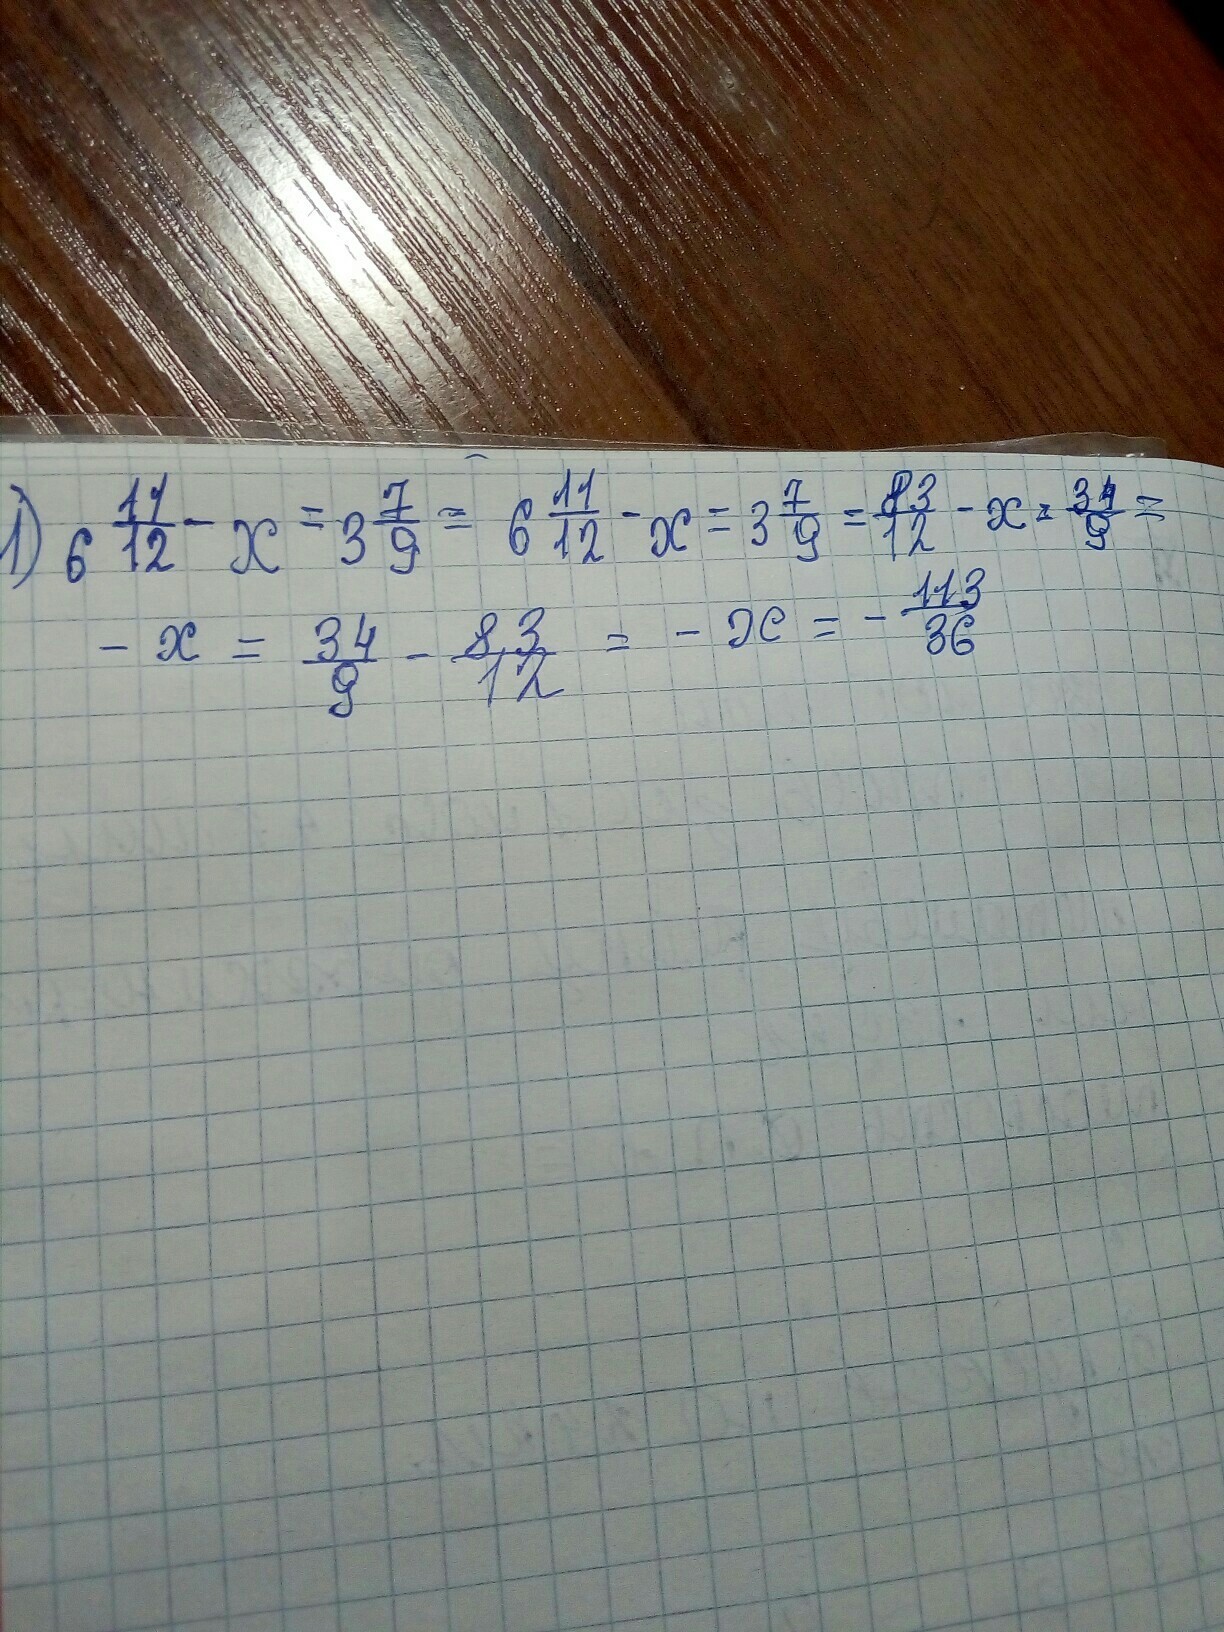 1) 6 11/12 - x = 3 7/9 = 6 11/12 - x = 3 7/9 = 83/12 - x = 34/9 =
- x = 34/9 - 83/12 = - x = - 113/36